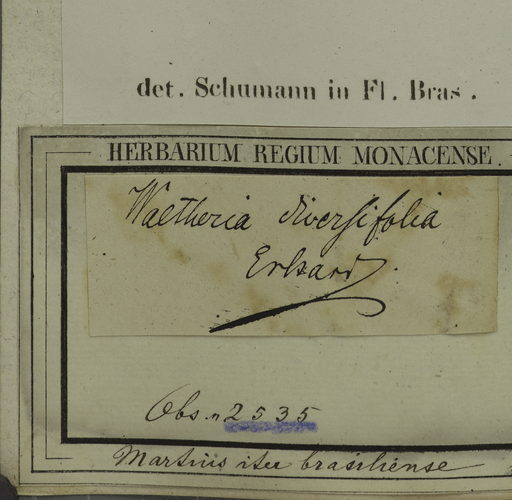 det. Schumann in Fl. Bras.
HERBARIUM REGIUM MONACENSE.
Waltheria diversifolia
Erhard.
Obs. n 2535
Martius iter brasiliense